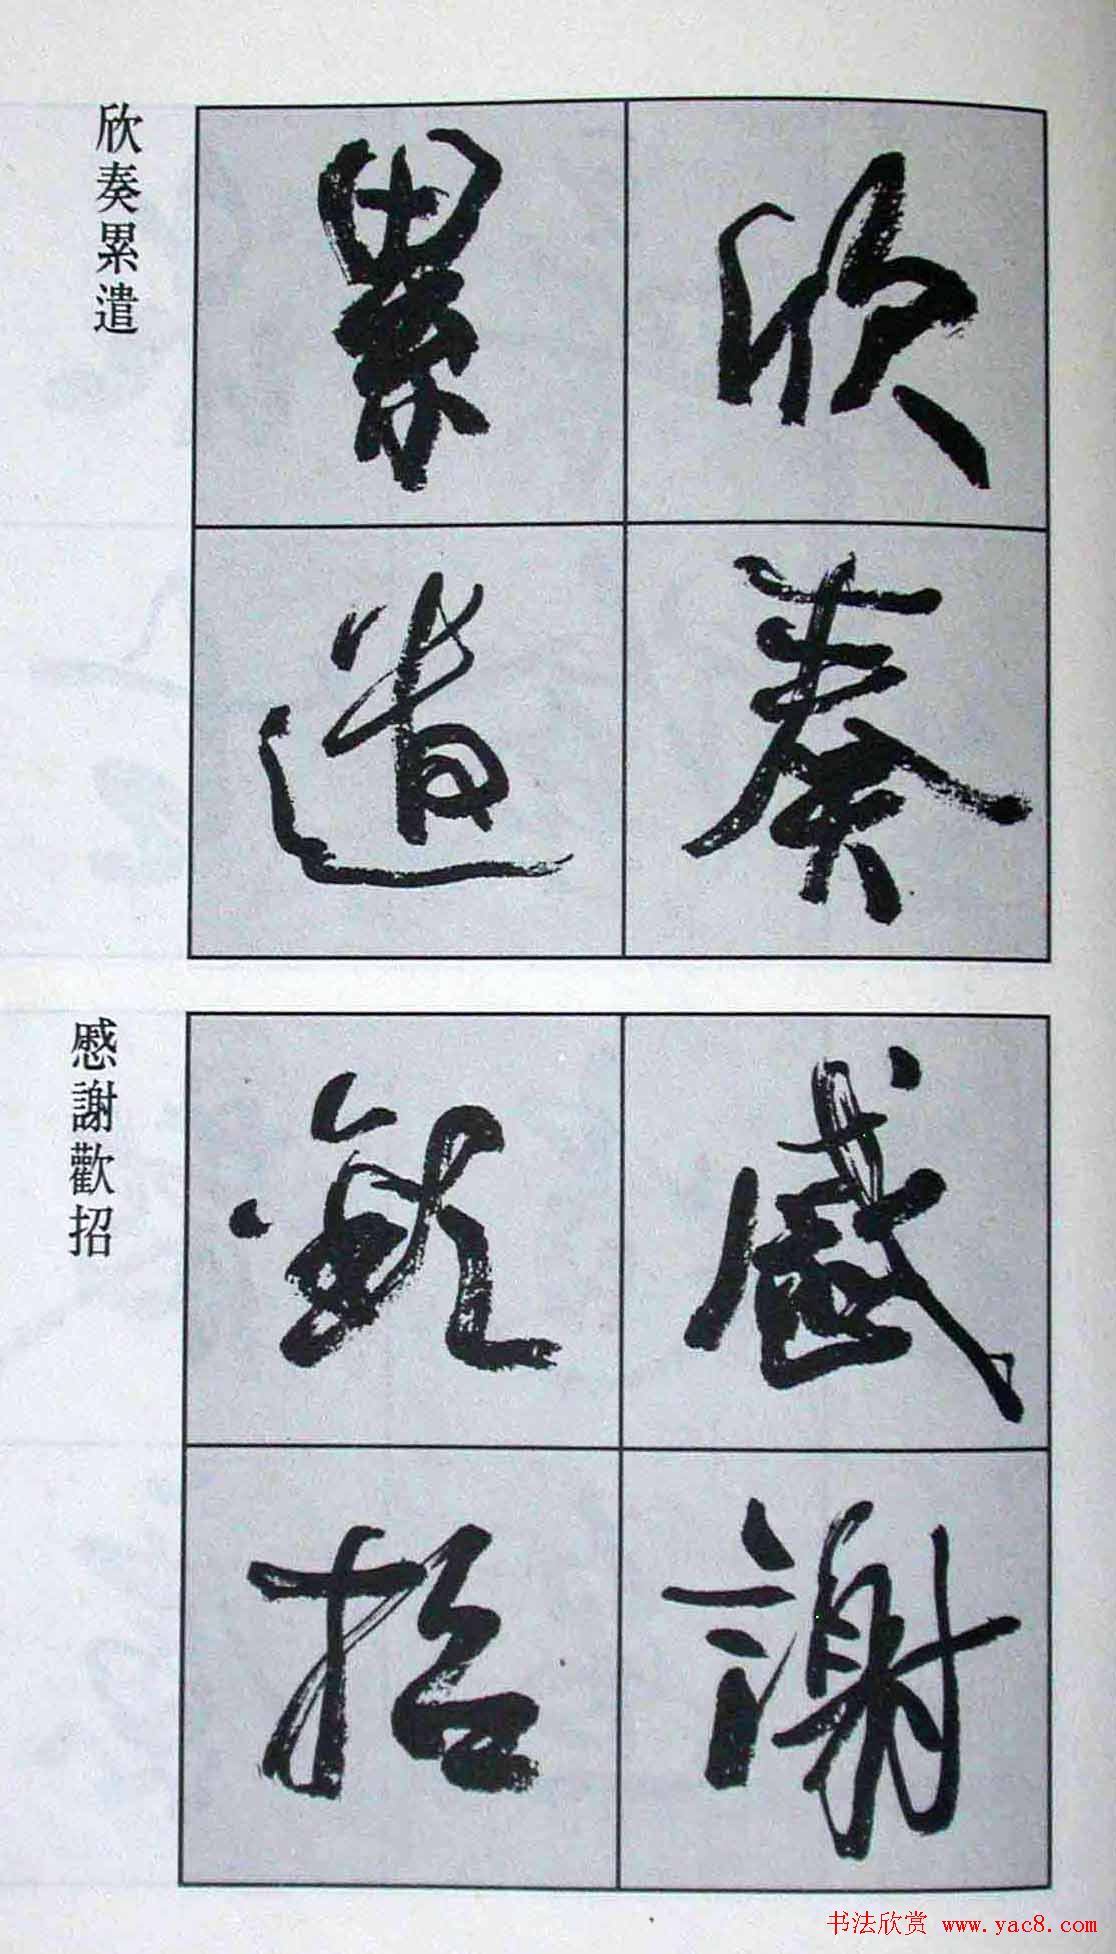 欣奏
累遣
欣奏累遣
慼謝
歡招
慼謝歡招
书法欣赏 www.yac8.com